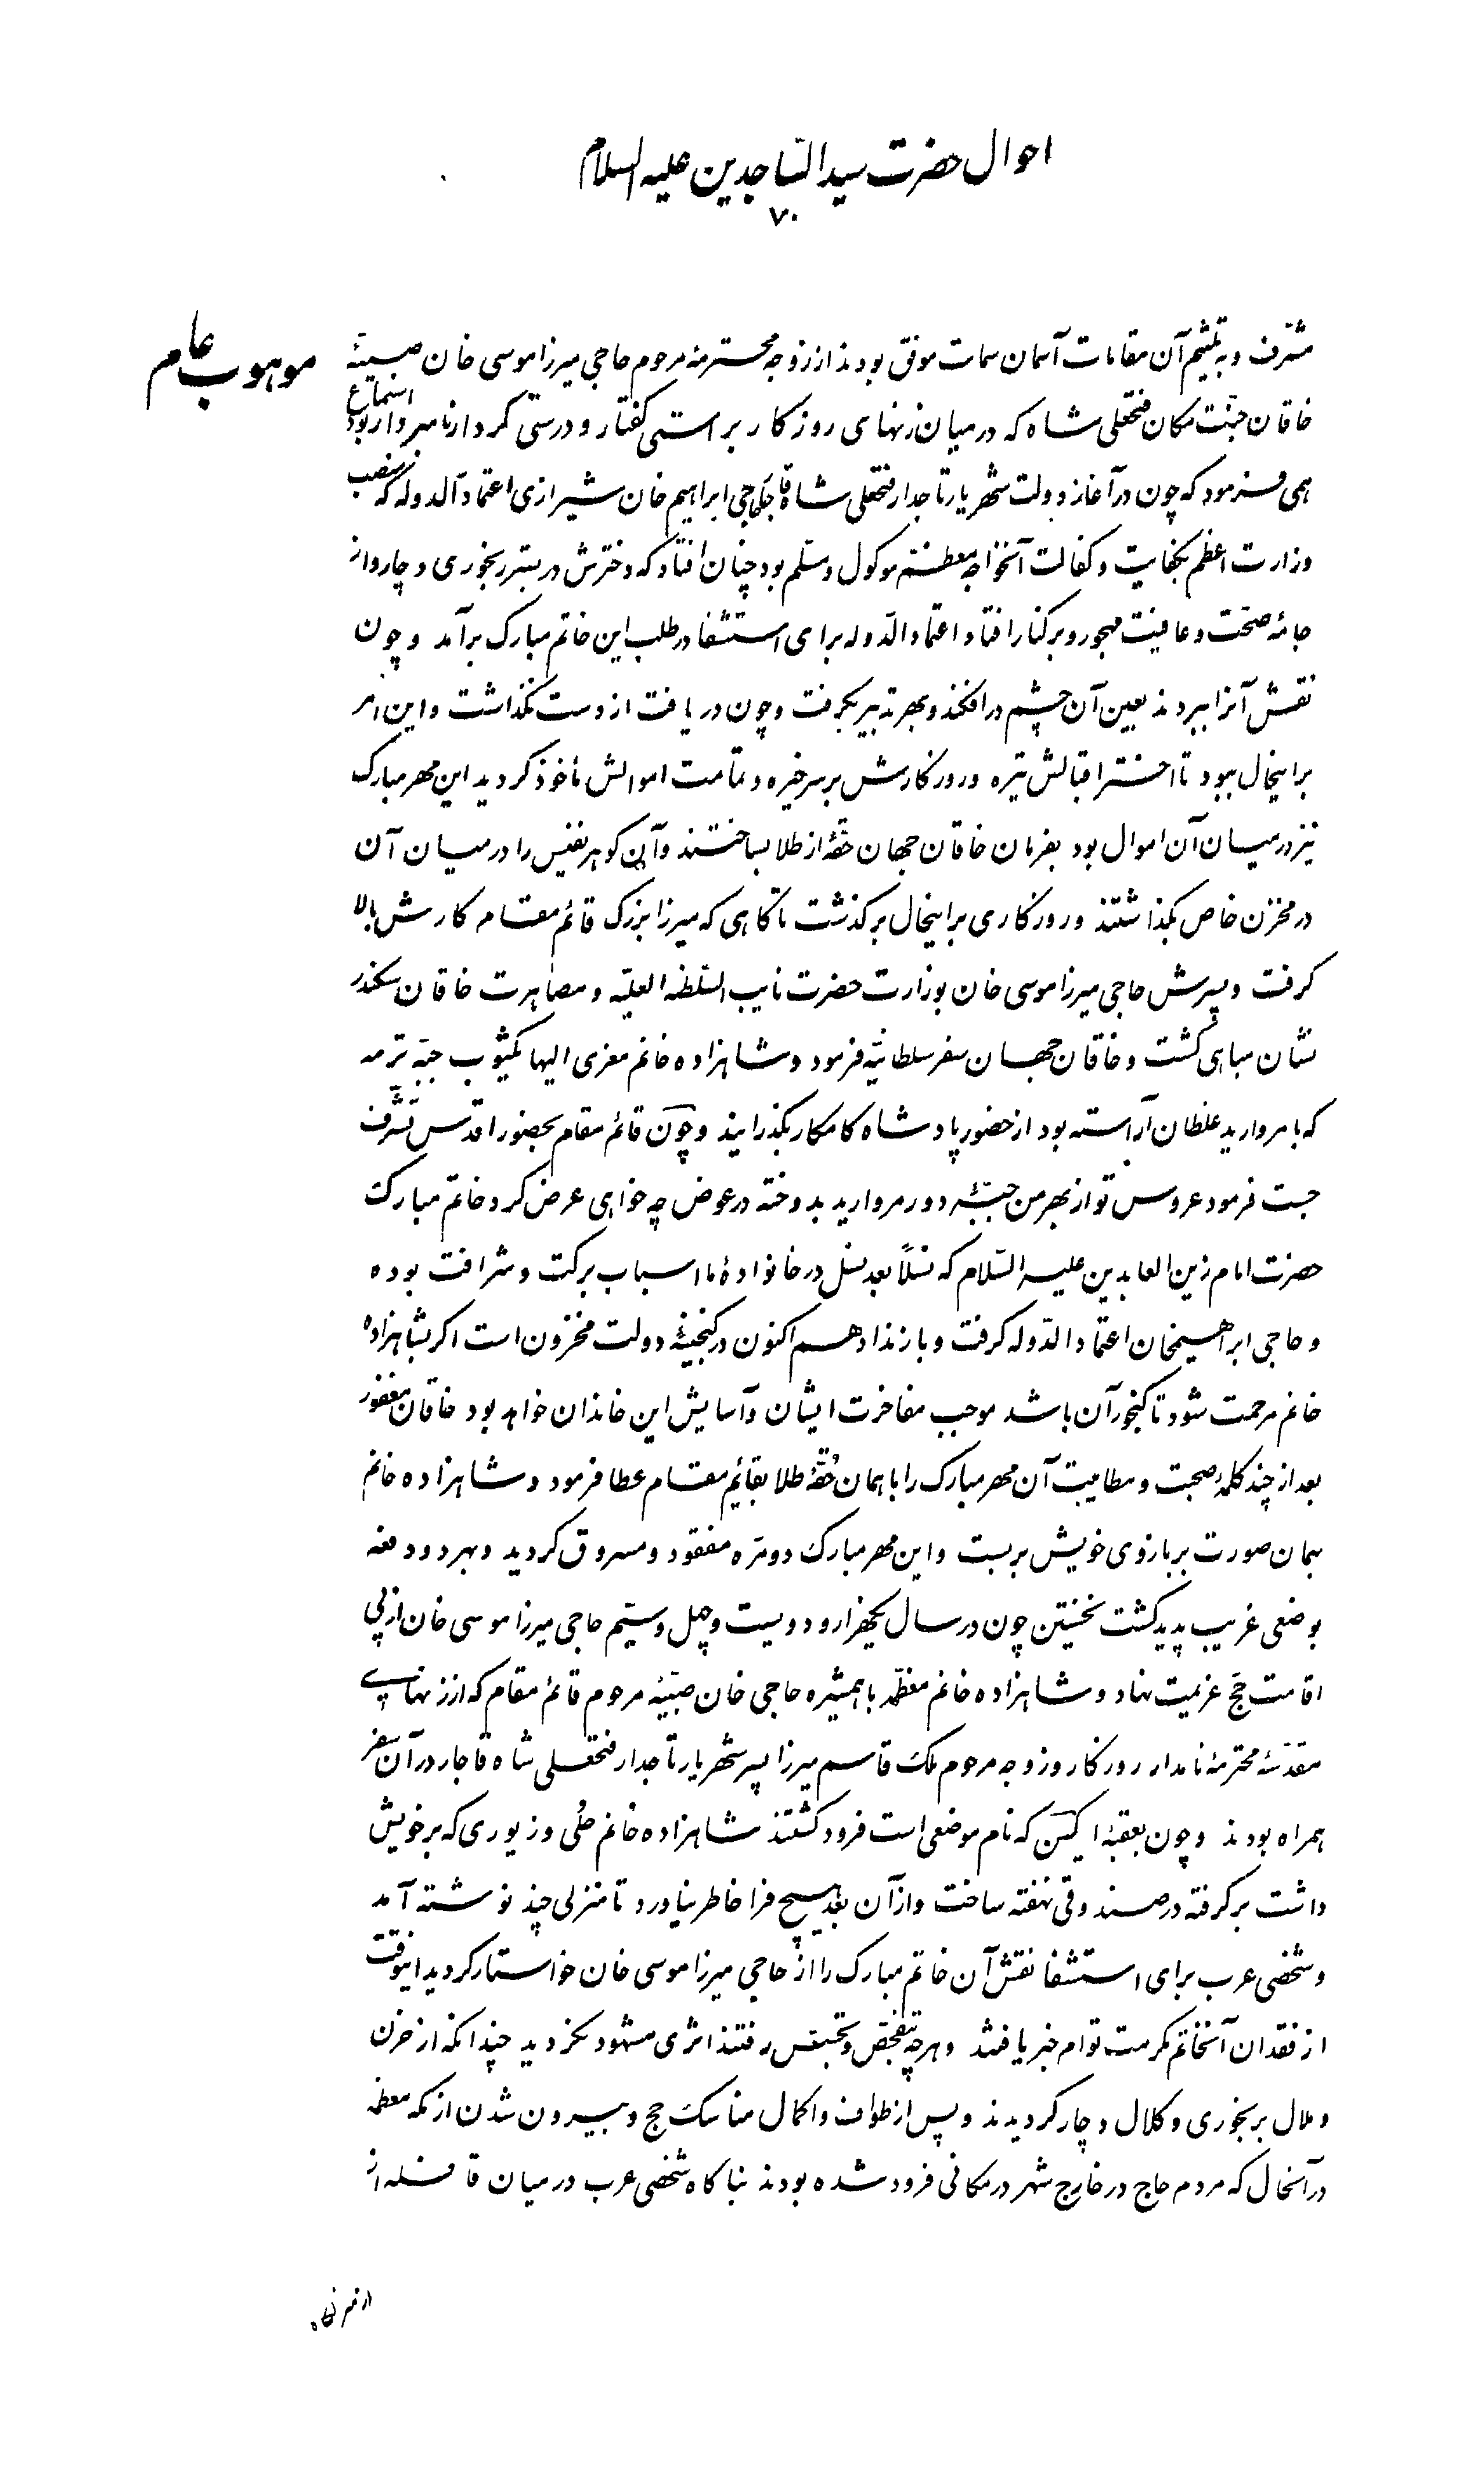 احوال حضرت سید الساجدین علیه السلام
۷۰
موهوب عام
مشرف و بتلثیم آن مقامات آسمان سمات موفق بودند از زوجه محترمهٔ مرحوم حاجی میرزا موسی خان صبیهٔ
خاقان جنّت مکان فتحعلی شاه که در میان زنهای روزگار براستی گفتار و درستی کردار نامبردار بود استماع
همی فرمود که چون در آغاز دولت شهریار تاجدار فتحعلی شاه قاجار حاجی ابراهیم خان شیرازی اعتماد الدوله که منصب
وزارت اعظم بکفایت و کفالت آنخواجه معظم موکول و مسلم بود چنان افتاد که دخترش در بستر رنجوری دچار و از
جامهٔ صحّت و عافیت مهجور و برکنار افتاد اعتماد الدوله برای استشفا در طلب این خاتم مبارک برآمد و چون
نقش آنرا ببردند بعین آن چشم در افکند و بهر تدبیر بگرفت و چون دریافت از دست نگذاشت و این امر
براینحال ببود تا اختر اقبالش تیره و روزگارش بر سر خیره و تمامت اموالش مأخوذ گردید این مهر مبارک
نیز در میان آن اموال بود بفرمان خاقان جهان حقّهٔ از طلا بساختند و آن گوهر نفیس را در میان آن
در مخزن خاص بگذاشتند و روزگاری براینحال برگذشت تا گاهی که میرزا بزرگ قائم مقام کارش بالا
گرفت و پسرش حاجی میرزا موسی خان بوزارت حضرت نایب السّلطنه العلیّه و مصاهرت خاقان سکندر
نشان مباهی گشت و خاقان جهان سفر سلطانیّه فرمود و شاهزاده خانم معزی الیها یکثوب جبّه ترمه
که با مروارید غلطان آراسته بود از حضور پادشاه کامکار بگذرانید و چون قائم مقام بحضور اقدس تشرّف
جست فرمود عروس تو از بهر من جبّهٔ دور مروارید بدوخته در عوض چه خواهی عرض کرد خاتم مبارک
حضرت امام زین العابدین علیه السّلام که نسلاً بعد نسل در خانوادهٔ ما اسباب برکت و شرافت بوده
و حاجی ابراهیمخان اعتماد الدوله گرفت و باز نداد هم اکنون در گنجینهٔ دولت مخزون است اگر بشاهزاده
خانم مرحمت شود تا گنجور آن باشد موجب مفاخرت ایشان و آسایش این خاندان خواهد بود خاقان مغفور
بعد از چند کلمهٔ صحبت و مطایبت آن مهر مبارک را با همان حُقّهٔ طلا بقائم مقام عطا فرمود و شاهزاده خانم
بهمان صورت بر بازوی خویش بر بست و این مهر مبارک دو مرّه مفقود و مسروق گردید و بهر دو دفعه
بوضعی غریب پدید گشت نخستین چون در سال یکهزار و دویست و چهل و سیّم حاجی میرزا موسی خان از پی
اقامت حجّ عزیمت نهاد و شاهزاده خانم معظّمه با همشیره حاجی خان صبیّهٔ مرحوم قائم مقام که از زنهای
مقدّسهٔ محترمهٔ نامدار روزگار و زوجه مرحوم ملک قاسم میرزا پسر شهریار تاجدار فتحعلی شاه قاجار در آن سفر
همراه بودند و چون بعقبهٔ که نام موضعی است فرود گشتند شاهزاده خانم حُلی و زیوری که بر خویش
داشت بر گرفته در صندوقی نهفته ساخت و از آن بعد هیچ فرا خاطر نیاورد تا منزلی چند نوشته آمد
و شخصی عرب برای استشفا نقش آن خاتم مبارک را از حاجی میرزا موسی خان خواستار گردید اینوقت
از فقدان آنخاتم کرمت توام خبر یافتند و هرچه بتفحّص و تجسّس رفتند اثری مشهود نگردید چندانکه از حزن
و ملال برنجوری و کلال دچار گردیدند و پس از طواف و اکمال مناسک حج و بیرون شدن از مکه معظمه
در آنحال که مردم حاج در خارج شهر در مکانی فرود شده بودند بناگاه شخصی عرب در میان قافله از